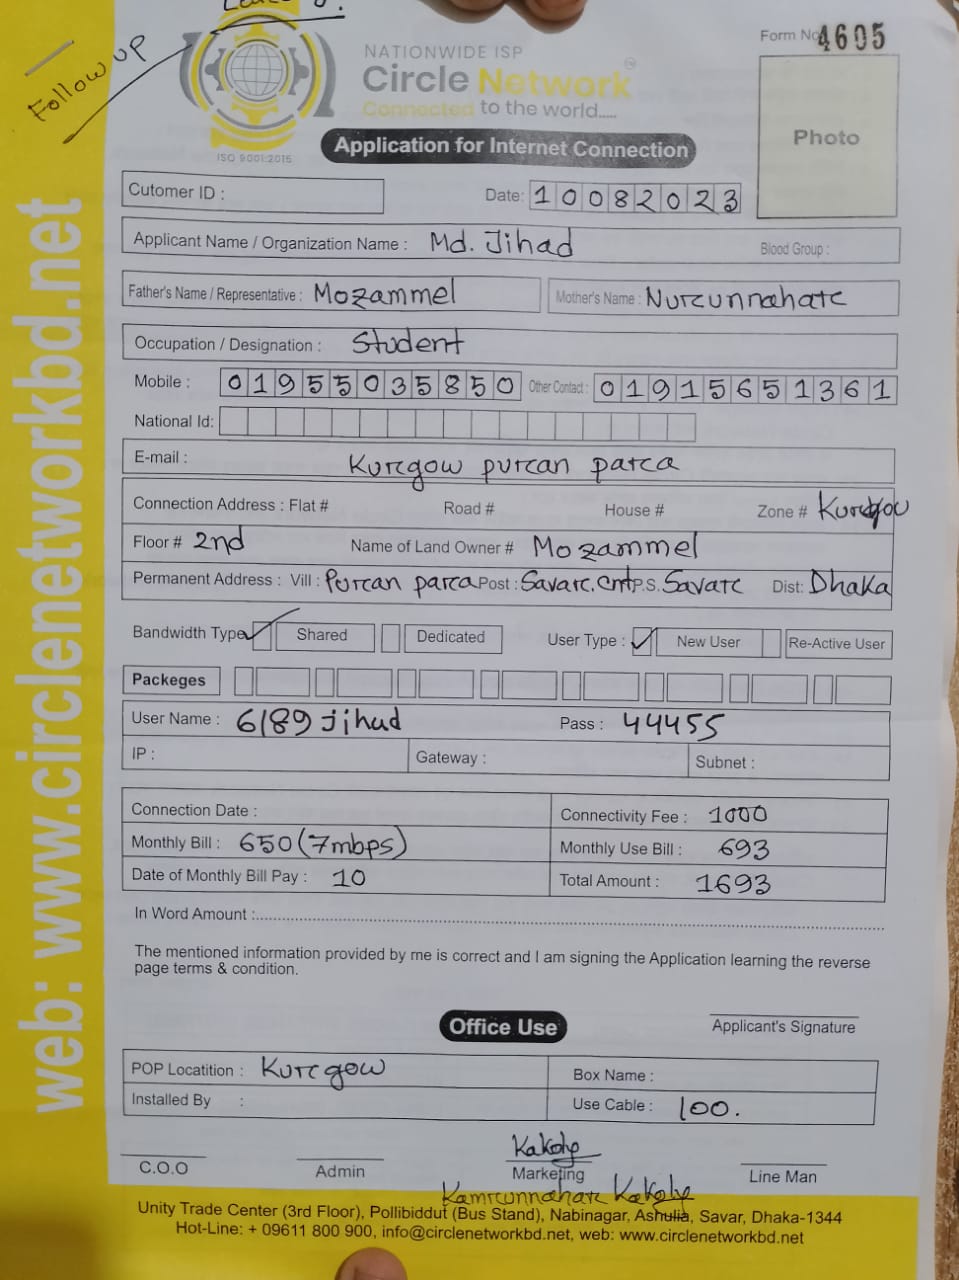 Follow up
Form No. 4605
NATIONWIDE ISP
Circle Network
Connected to the world.....
ISO 9001:2015
Application for Internet Connection
Photo
Cutomer ID :
Date: 10082023
Applicant Name / Organization Name : Md. Jihad Blood Group :
Father's Name / Representative : Mozammel Mother's Name : Nurunnahar
Occupation / Designation : Student
Mobile : 01955035850 Other Contact : 01915651361
National Id:
E-mail : Kurgow puran para
Connection Address : Flat # Road # House # Zone # Kurgow
Floor # 2nd Name of Land Owner # Mozammel
Permanent Address : Vill : Puran para Post : Savar, Cnt P.S. Savar Dist: Dhaka
Bandwidth Type Shared Dedicated User Type : New User Re-Active User
Packeges
User Name : 6189 jihad Pass : 44455
IP : Gateway : Subnet :
Connection Date : Connectivity Fee : 1000
Monthly Bill : 650 (7mbps) Monthly Use Bill : 693
Date of Monthly Bill Pay : 10 Total Amount : 1693
In Word Amount :
The mentioned information provided by me is correct and I am signing the Application learning the reverse
page terms & condition.
Office Use
Applicant's Signature
POP Locatition : Kurgow Box Name :
Installed By : Use Cable : 100.
Kakoly
C.O.O Admin Marketing Line Man
Kamrunnahar Kakoly
Unity Trade Center (3rd Floor), Pollibiddut (Bus Stand), Nabinagar, Ashulia, Savar, Dhaka-1344
Hot-Line: + 09611 800 900, info@circlenetworkbd.net, web: www.circlenetworkbd.net
web: www.circlenetworkbd.net